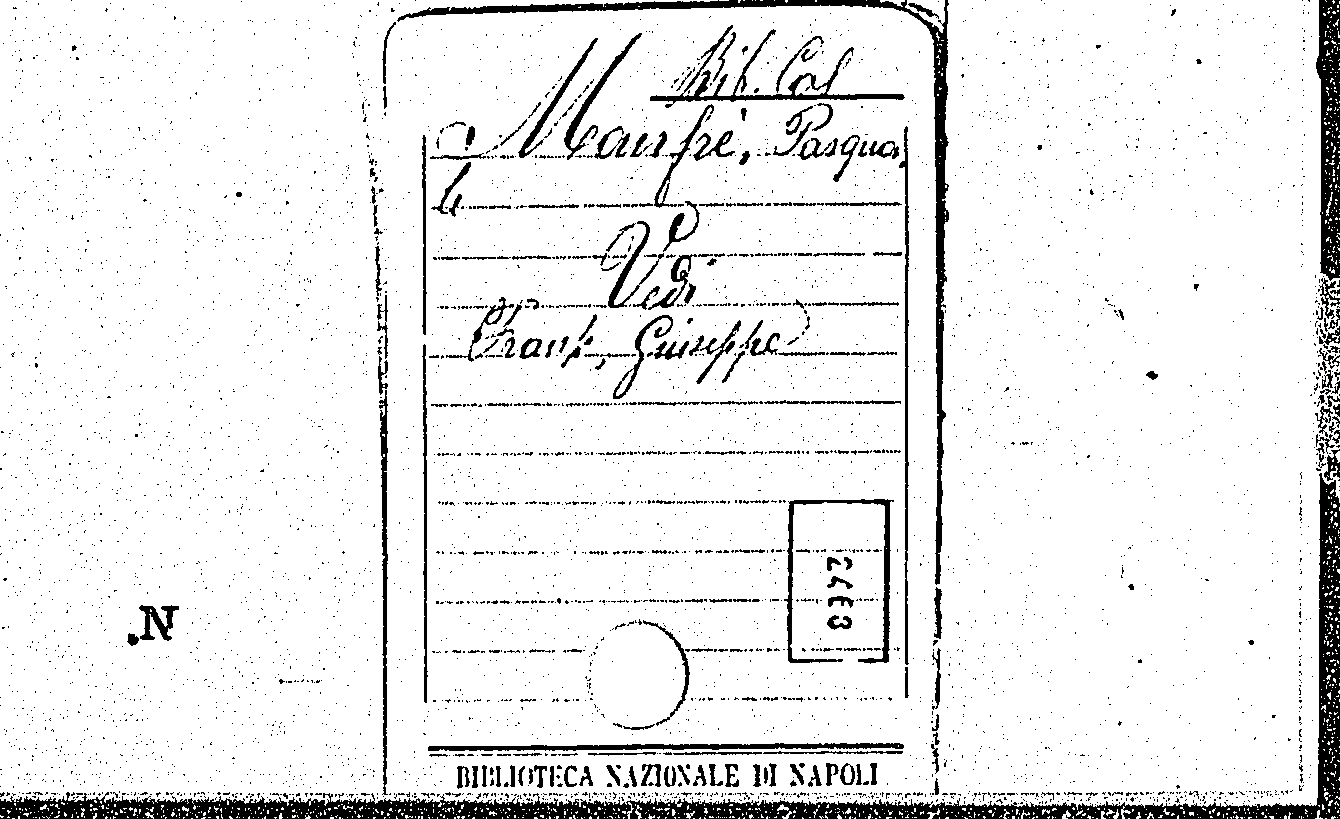 Bib. Cal
Manfrè, Pasqua,
le
Vedi
Frank, Giuseppe
.N
BIBLIOTECA NAZIONALE DI NAPOLI